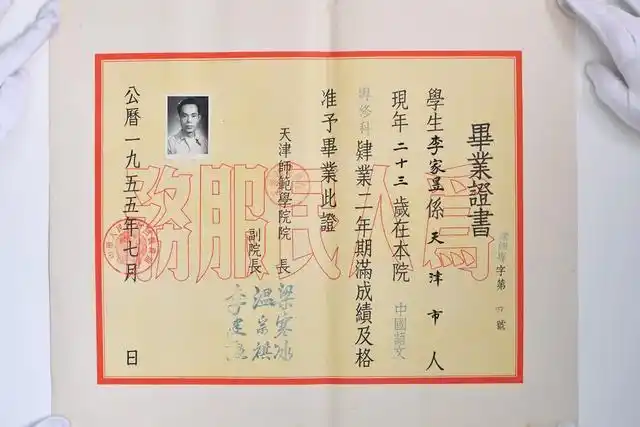 畢業證書
字第四號
學生李家係天津市人
現年二十三歲在本院中國語文
專修科肄業二年期滿成績及格
准予畢業此證
天津師範學院院長
副院長
梁寒冰
溫宗祺
李建
公曆一九五五年七月 日
爲人民服務